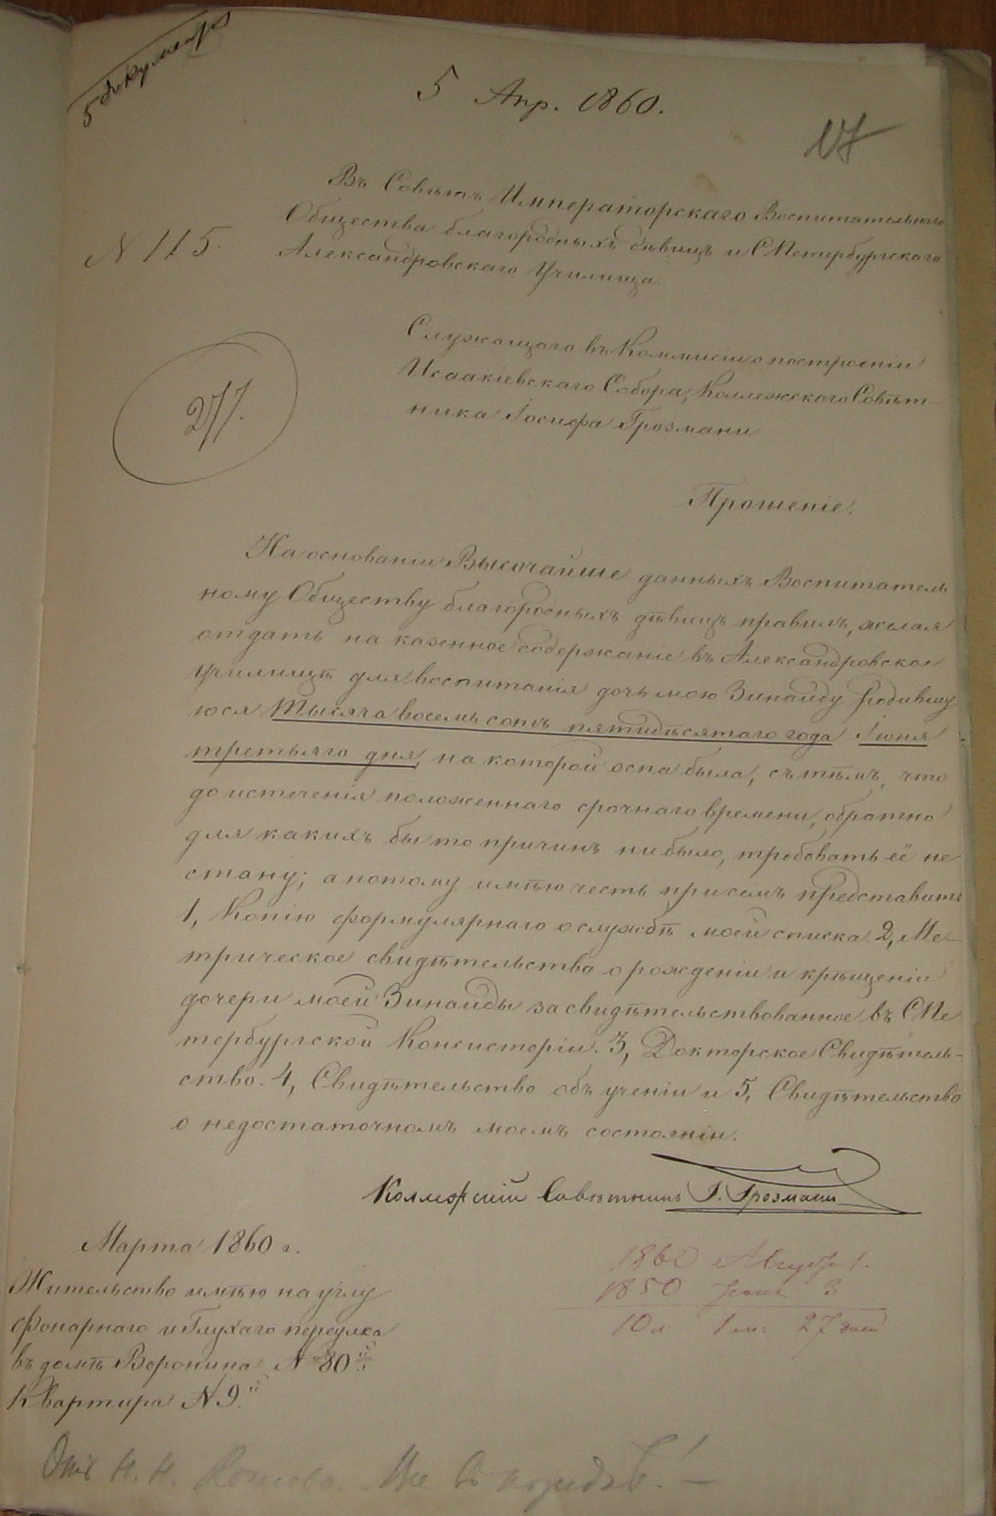 5 документ
5 Апр. 1860.
17
Въ Совѣтъ Императорскаго Воспитательнаго
Общества благородныхъ дѣвицъ и СПетербургскаго
Александровскаго Училища
N 115.
277.
Служащаго въ Коммисіи о построеніи
Исаакіевскаго Собора, Коллежскаго Совѣт-
ника Іосифа Грозмани
Прошеніе.
На основаніи Высочайше данныхъ Воспитатель
ному Обществу благородныхъ дѣвицъ правилъ, желая
отдать на казенное содержаніе въ Александровское
Училище для воспитанія дочь мою Зинаиду родившу
юся Тысяча восемь сотъ пятидесятаго года Іюня
третьяго дня, на которой оспа была, съ тѣмъ, что
до истеченія положеннаго срочнаго времени, обратно
для какихъ бы то причинъ ни было, требовать её не
стану; а потому имѣю честь при семъ представить
1, Копію формулярнаго о службѣ моей списка 2, Ме-
трическое свидѣтельство о рожденіи и крещеніи
дочери моей Зинаиды засвидѣтельствованное въ СПе
тербургской Консисторіи. 3, Докторское Свидѣтель-
ство. 4, Свидѣтельство объ ученіи и 5, Свидѣтельство
о недостаточномъ моемъ состояніи.
Коллежскій Совѣтникъ І. Грозмани
Марта 1860 г.
Жительство имѣю на углу
Фонарнаго и Глухаго переулка
въ домѣ Воронина N 80й
Квартира N 9й
1860 Августа 1.
1850 Іюня 3
10 л. 1 м. 27 дней
Отъ Н. Н.